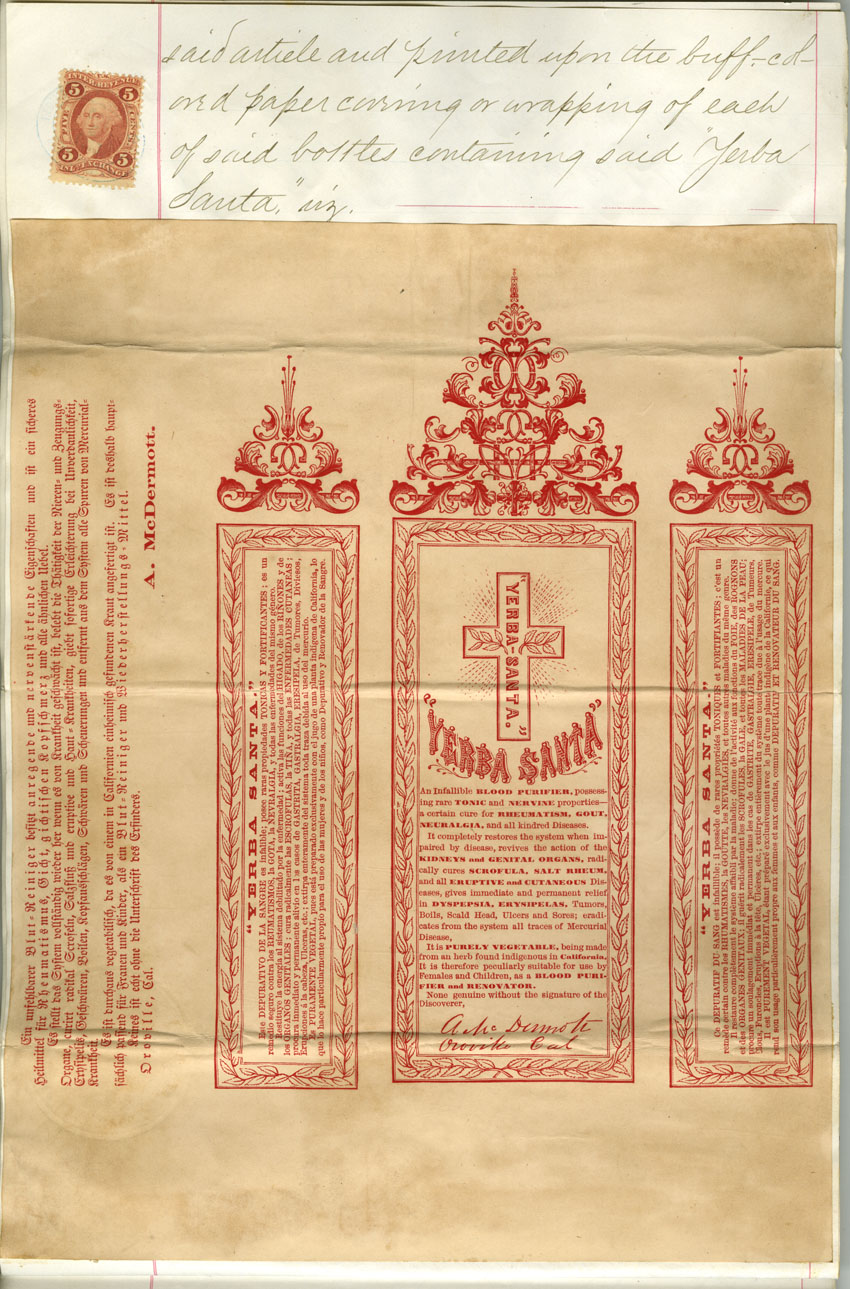 said article and printed upon the buff-col-
ored paper covering or wrapping of each
of said bottles containing said "Yerba
Santa," viz.
5 INTER. REVENUE 5
FIVE CENTS
5 INL. EXCHANGE 5
Ein unfehlbarer Blut-Reiniger besitzt anregende und nervenstärkende Eigenschaften und ist ein sicheres
Heilmittel für Rheumatismus, Gicht, gichtischen Kopfschmerz und alle ähnlichen Uebel.
Es stellt das System vollständig wieder her wenn es von Krankheit geschwächt ist, belebt die Thätigkeit der Nieren- und Zeugungs-
Organe, curirt radikal Scrofeln, Salzfluß und eruptive und Haut-Krankheiten, giebt sofortige Erleichterung bei Unverdaulichkeit,
Erysipels, Geschwüren, Beulen, Kopfausschlägen, Schwären und Scheuerungen und entfernt aus dem System alle Spuren von Mercurial-
Krankheit.
Es ist durchaus vegetabilisch, da es von einem in Californien einheimisch gefundenen Kraut angefertigt ist. Es ist deshalb haupt-
sächlich passend für Frauen und Kinder, als ein Blut-Reiniger und Wiederherstellungs-Mittel.
Keines ist echt ohne die Unterschrift des Erfinders.
Oroville, Cal.
A. McDermott.
"YERBA SANTA."
Este DEPURATIVO DE LA SANGRE es infalible; posee raras propiedades TONICAS Y FORTIFICANTES; es un
remedio seguro contra los RHEUMATISMOS, la GOTA, la NEVRALGIA, y todas las enfermedades del mismo género.
Restituye la energia al sistema debilitado por la enfermedad; activa las funciones del HIGADO, de los RIÑONES y de
los ORGANOS GENITALES; cura radicalmente las ESCROFULAS, la TIÑA, y todas las ENFERMEDADES CUTANEAS;
procura inmediato y permanente alivio en los casos de GASTRITA, GASTRALGIA, ERESIPELA, de Tumores, Diviesos,
Erupciones á la cabeza, Ulceras, etc.; extirpa enteramente del sistema toda traza debida al uso del mercurio.
Es PURAMENTE VEGETAL, pues está preparado exclusivamente con el jugo de una planta indígena de California, lo
que lo hace particularmente propio para el uso de las mujeres y de los niños, como Depurativo y Renovador de la Sangre.
"YERBA-SANTA."
"YERBA SANTA"
An Infallible BLOOD PURIFIER, possess-
ing rare TONIC and NERVINE properties—
a certain cure for RHEUMATISM, GOUT,
NEURALGIA, and all kindred Diseases.
It completely restores the system when im-
paired by disease, revives the action of the
KIDNEYS and GENITAL ORGANS, radi-
cally cures SCROFULA, SALT RHEUM,
and all ERUPTIVE and CUTANEOUS Dis-
eases, gives immediate and permanent relief
in DYSPEPSIA, ERYSIPELAS, Tumors,
Boils, Scald Head, Ulcers and Sores; eradi-
cates from the system all traces of Mercurial
Disease,
It is PURELY VEGETABLE, being made
from an herb found indigenous in California.
It is therefore peculiarly suitable for use by
Females and Children, as a BLOOD PURI-
FIER and RENOVATOR.
None genuine without the signature of the
Discoverer,
A. Mc Dermott
Oroville Cal
"YERBA SANTA."
Ce DEPURATIF DU SANG est infaillible; il possède de rares propriétés TONIQUES et FORTIFIANTES; c'est un
remède certain contre les RHEUMATISMES, la GOUTTE, les NEVRALGIES, et toutes autres maladies du même genre.
Il restaure complètement le système affaibli par la maladie; donne de l'activité aux fonctions du FOIE, des ROGNONS
et des ORGANES GENITAUX; il guérit radicalement les SCROFULES, la GALE, et toutes les MALADIES DE LA PEAU;
procure un soulagement immédiat et permanent dans les cas de GASTRITE, GASTRALGIE, ERESIPELE, de Tumeurs,
Clous, Furoncles, Eruptions à la tête, Ulcères, etc.; extirpe entièrement du système toute trace due à l'usage du mercure.
Il est PUREMENT VEGETAL, étant préparé exclusivement avec le jus d'une plant indigène de la Californie, ce qui
rend son usage particulièrement propre aux femmes et aux enfants, comme DEPURATIF ET RENOVATEUR DU SANG.